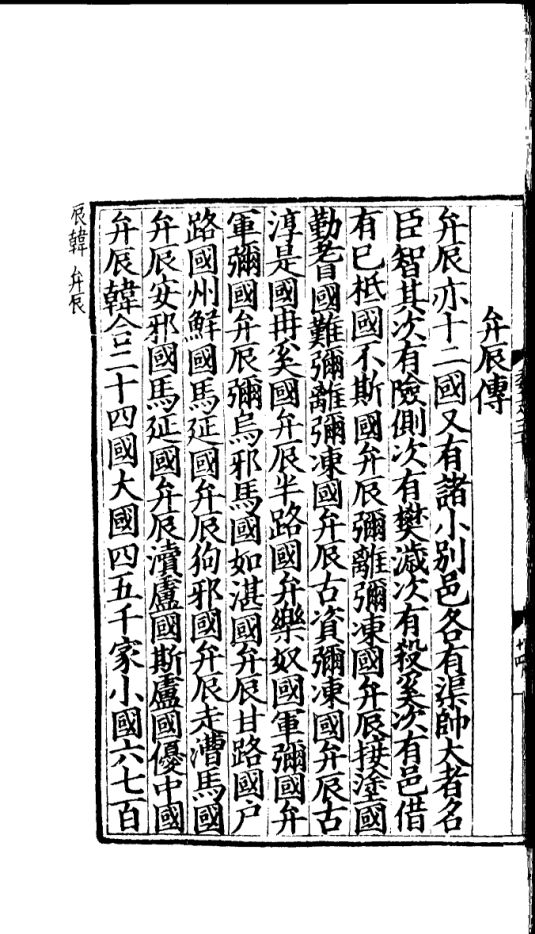 弁辰傳
弁辰亦十二國又有諸小别邑各有渠帥大者名
臣智其次有險側次有樊濊次有殺奚次有邑借
有已柢國不斯國弁辰彌離彌凍國弁辰接塗國
勤耆國難彌離彌凍國弁辰古資彌凍國弁辰古
淳是國冉奚國弁辰半路國弁樂奴國軍彌國弁
軍彌國弁辰彌烏邪馬國如湛國弁辰甘路國戶
路國州鮮國馬延國弁辰狗邪國弁辰走漕馬國
弁辰安邪國馬延國弁辰瀆盧國斯盧國優中國
弁辰韓合二十四國大國四五千家小國六七百
辰韓 弁辰